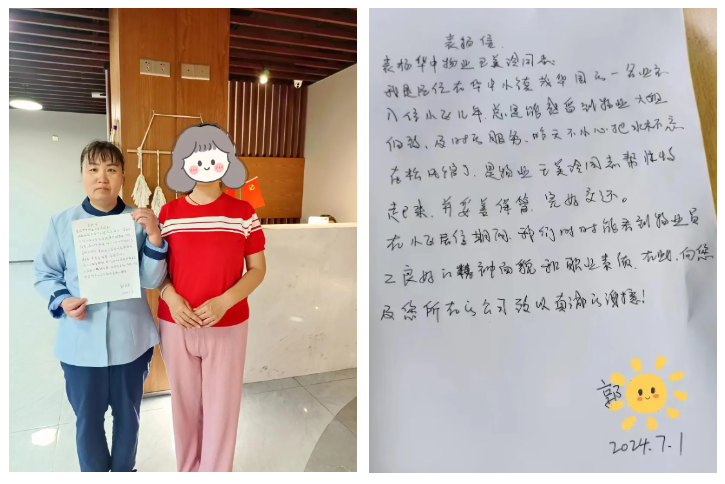 表扬信
表扬华中物业王美玲同志
我是居住在华中小镇茂华园的一名业主
入住小区几年,总是能够看到物业大姐
们的及时服务,昨天不小心把水杯忘
在松语馆了,是物业王美玲同志帮忙收
起来,并妥善保管,完好交还。
在小区居住期间,我们时时能看到物业员
工良好的精神面貌和职业素质,在此,向您
及您所在的公司致以真诚的谢意!
郭
2024.7.1